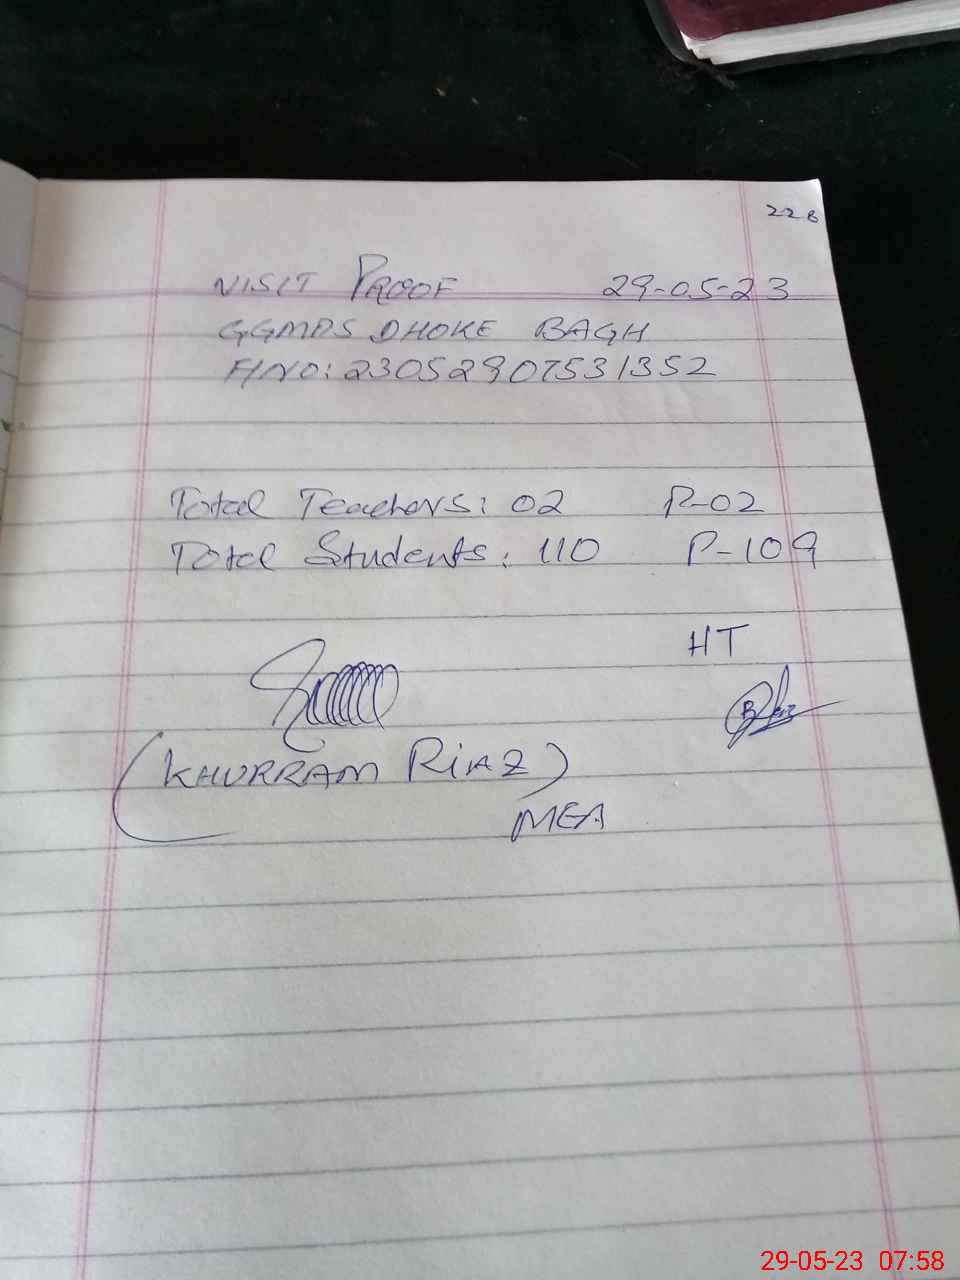 228
VISIT PROOF 29-05-23
GGMPS DHOKE BAGH
23052907531352
Total Teachers: 02 P-02
Total Students: 110 P-109
HT
(KHURRAM RIAZ)
MEA
29-05-23 07:58